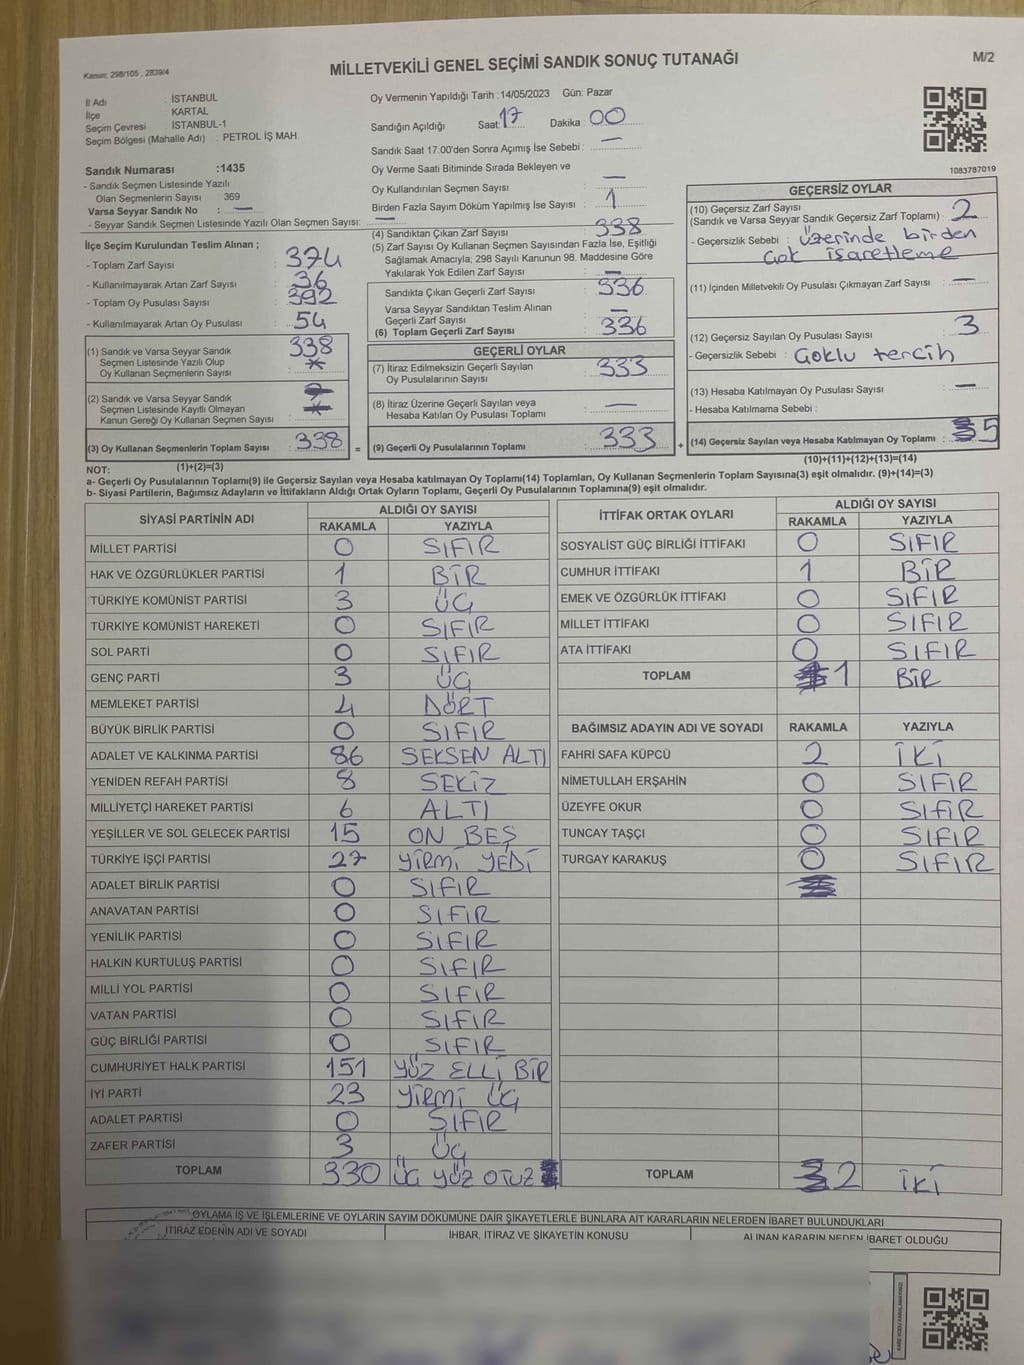 Kanun: 298/105 , 2839/4
MİLLETVEKİLİ GENEL SEÇİMİ SANDIK SONUÇ TUTANAĞI
M/2
İl Adı : İSTANBUL
İlçe KARTAL
Seçim Çevresi : İSTANBUL-1
Seçim Bölgesi (Mahalle Adı) : PETROL İŞ MAH.
Sandık Numarası :1435
- Sandık Seçmen Listesinde Yazılı
Olan Seçmenlerin Sayısı : 369
Varsa Seyyar Sandık No : —
- Seyyar Sandık Seçmen Listesinde Yazılı Olan Seçmen Sayısı: —
Oy Vermenin Yapıldığı Tarih :14/05/2023 Gün: Pazar
Sandığın Açıldığı Saat: 17 Dakika : 00
Sandık Saat 17:00'den Sonra Açımış İse Sebebi : —
Oy Verme Saati Bitiminde Sırada Bekleyen ve
Oy Kullandırılan Seçmen Sayısı : —
Birden Fazla Sayım Döküm Yapılmış İse Sayısı : 1
1083787019
İlçe Seçim Kurulundan Teslim Alınan ;
- Toplam Zarf Sayısı : 374
- Kullanılmayarak Artan Zarf Sayısı : 36
- Toplam Oy Pusulası Sayısı : 392
- Kullanılmayarak Artan Oy Pusulası : 54
(1) Sandık ve Varsa Seyyar Sandık
Seçmen Listesinde Yazılı Olup
Oy Kullanan Seçmenlerin Sayısı : 338
(2) Sandık ve Varsa Seyyar Sandık
Seçmen Listesinde Kayıtlı Olmayan
Kanun Gereği Oy Kullanan Seçmen Sayısı :
(3) Oy Kullanan Seçmenlerin Toplam Sayısı : 338
(1)+(2)=(3)
(4) Sandıktan Çıkan Zarf Sayısı : 338
(5) Zarf Sayısı Oy Kullanan Seçmen Sayısından Fazla İse, Eşitliği
Sağlamak Amacıyla; 298 Sayılı Kanunun 98. Maddesine Göre
Yakılarak Yok Edilen Zarf Sayısı : —
Sandıkta Çıkan Geçerli Zarf Sayısı : 336
Varsa Seyyar Sandıktan Teslim Alınan
Geçerli Zarf Sayısı : —
(6) Toplam Geçerli Zarf Sayısı : 336
GEÇERLİ OYLAR
(7) İtiraz Edilmeksizin Geçerli Sayılan
Oy Pusulalarının Sayısı : 333
(8) İtiraz Üzerine Geçerli Sayılan veya
Hesaba Katılan Oy Pusulası Toplamı : —
= (9) Geçerli Oy Pusulalarının Toplamı : 333 +
GEÇERSİZ OYLAR
(10) Geçersiz Zarf Sayısı
(Sandık ve Varsa Seyyar Sandık Geçersiz Zarf Toplamı) : 2
- Geçersizlik Sebebi : Üzerinde birden
çok işaretleme
(11) İçinden Milletvekili Oy Pusulası Çıkmayan Zarf Sayısı : —
(12) Geçersiz Sayılan Oy Pusulası Sayısı : 3
- Geçersizlik Sebebi : Çoklu tercih
(13) Hesaba Katılmayan Oy Pusulası Sayısı : —
- Hesaba Katılmama Sebebi :
(14) Geçersiz Sayılan veya Hesaba Katılmayan Oy Toplamı : 5
(10)+(11)+(12)+(13)=(14)
NOT:
a- Geçerli Oy Pusulalarının Toplamı(9) ile Geçersiz Sayılan veya Hesaba katılmayan Oy Toplamı(14) Toplamları, Oy Kullanan Seçmenlerin Toplam Sayısına(3) eşit olmalıdır. (9)+(14)=(3)
b- Siyasi Partilerin, Bağımsız Adayların ve İttifakların Aldığı Ortak Oyların Toplamı, Geçerli Oy Pusulalarının Toplamına(9) eşit olmalıdır.
SİYASİ PARTİNİN ADI ALDIĞI OY SAYISI
RAKAMLA YAZIYLA
MİLLET PARTİSİ 0 SIFIR
HAK VE ÖZGÜRLÜKLER PARTİSİ 1 BİR
TÜRKİYE KOMÜNİST PARTİSİ 3 ÜÇ
TÜRKİYE KOMÜNİST HAREKETİ 0 SIFIR
SOL PARTİ 0 SIFIR
GENÇ PARTİ 3 ÜÇ
MEMLEKET PARTİSİ 4 DÖRT
BÜYÜK BİRLİK PARTİSİ 0 SIFIR
ADALET VE KALKINMA PARTİSİ 86 SEKSEN ALTI
YENİDEN REFAH PARTİSİ 8 SEKİZ
MİLLİYETÇİ HAREKET PARTİSİ 6 ALTI
YEŞİLLER VE SOL GELECEK PARTİSİ 15 ON BEŞ
TÜRKİYE İŞÇİ PARTİSİ 27 YİRMİ YEDİ
ADALET BİRLİK PARTİSİ 0 SIFIR
ANAVATAN PARTİSİ 0 SIFIR
YENİLİK PARTİSİ 0 SIFIR
HALKIN KURTULUŞ PARTİSİ 0 SIFIR
MİLLİ YOL PARTİSİ 0 SIFIR
VATAN PARTİSİ 0 SIFIR
GÜÇ BİRLİĞİ PARTİSİ 0 SIFIR
CUMHURİYET HALK PARTİSİ 151 YÜZ ELLİ BİR
İYİ PARTİ 23 YİRMİ ÜÇ
ADALET PARTİSİ 0 SIFIR
ZAFER PARTİSİ 3 ÜÇ
TOPLAM 330 ÜÇ YÜZ OTUZ
İTTİFAK ORTAK OYLARI ALDIĞI OY SAYISI
RAKAMLA YAZIYLA
SOSYALİST GÜÇ BİRLİĞİ İTTİFAKI 0 SIFIR
CUMHUR İTTİFAKI 1 BİR
EMEK VE ÖZGÜRLÜK İTTİFAKI 0 SIFIR
MİLLET İTTİFAKI 0 SIFIR
ATA İTTİFAKI 0 SIFIR
TOPLAM 1 BİR
BAĞIMSIZ ADAYIN ADI VE SOYADI RAKAMLA YAZIYLA
FAHRİ SAFA KÜPCÜ 2 İKİ
NİMETULLAH ERŞAHİN 0 SIFIR
ÜZEYFE OKUR 0 SIFIR
TUNCAY TAŞÇI 0 SIFIR
TURGAY KARAKUŞ 0 SIFIR
TOPLAM 2 İKİ
OYLAMA İŞ VE İŞLEMLERİNE VE OYLARIN SAYIM DÖKÜMÜNE DAİR ŞİKAYETLERLE BUNLARA AİT KARARLARIN NELERDEN İBARET BULUNDUKLARI
İTİRAZ EDENİN ADI VE SOYADI İHBAR, İTİRAZ VE ŞİKAYETİN KONUSU ALINAN KARARIN NEDEN İBARET OLDUĞU